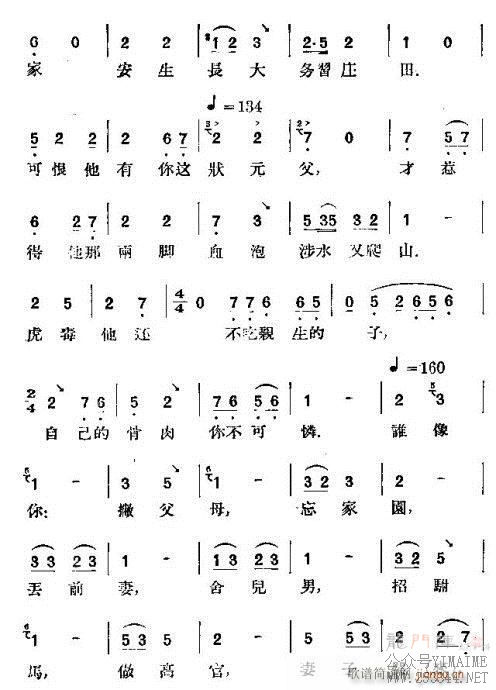 6 0 2 2 1 2 3 2·5 2 4 0
家 安生長大 务習庄 田.
♩=134
5 2 2 2 6 7 2 2 7 0 7 5 7
可恨他有你这狀元父, 才惹
6 2 7 2 2 7 3 5 35 3 2 1 -
得 那兩脚血泡涉水又爬山.
2 5 2 7 4/4 0 7 7 6 6 0 5 2 6 5 6
虎毒他还 不吃親生的子,
♩=160
2/4 2 7 6 5 2 7 6 5 6 1 - 2 3
自己的骨肉你不可憐. 誰像
1 - 3 5 1 - 3 2 3 1 -
你: 撇父母, 忘家園,
3 3 2 3 1 - 3 3 2 3 1 - 5 5
丟前妻, 舍兒男, 招駙
1 - 2 5 3 5 - 2 5 3 2 2 7
馬, 做高官, 妻子
公众号YIMAIME
歌谱简谱网
jianpu.cn